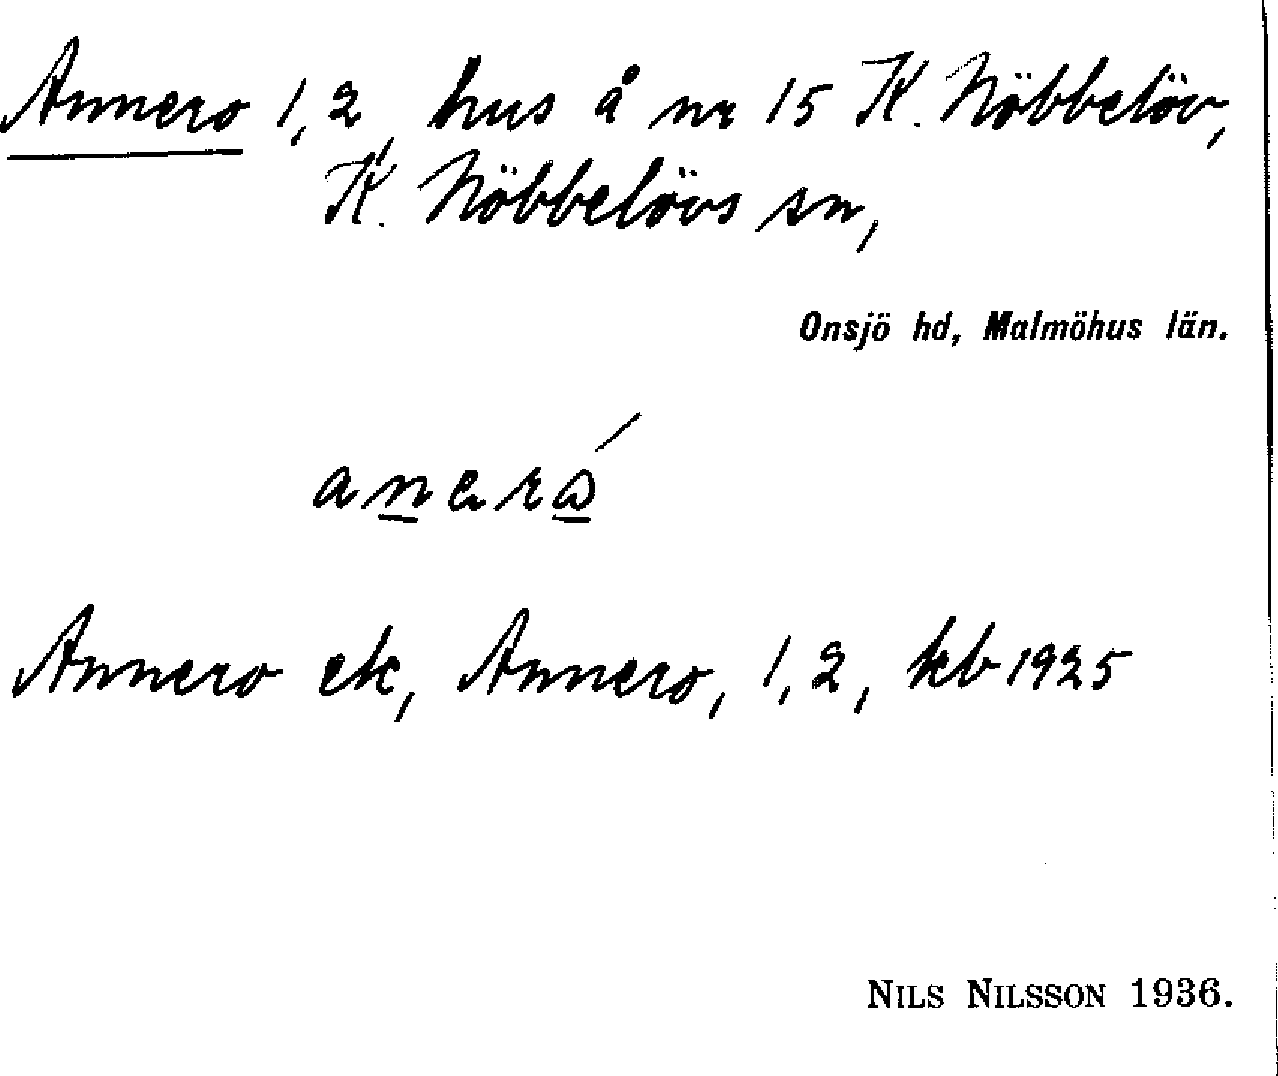 Annero 1,2, hus å nr 15 K. Nöbbelöv,
K. Nöbbelövs sn,
Onsjö hd, Malmöhus län.
Annero ek, Annero, 1,2, kb 1925
NILS NILSSON 1936.